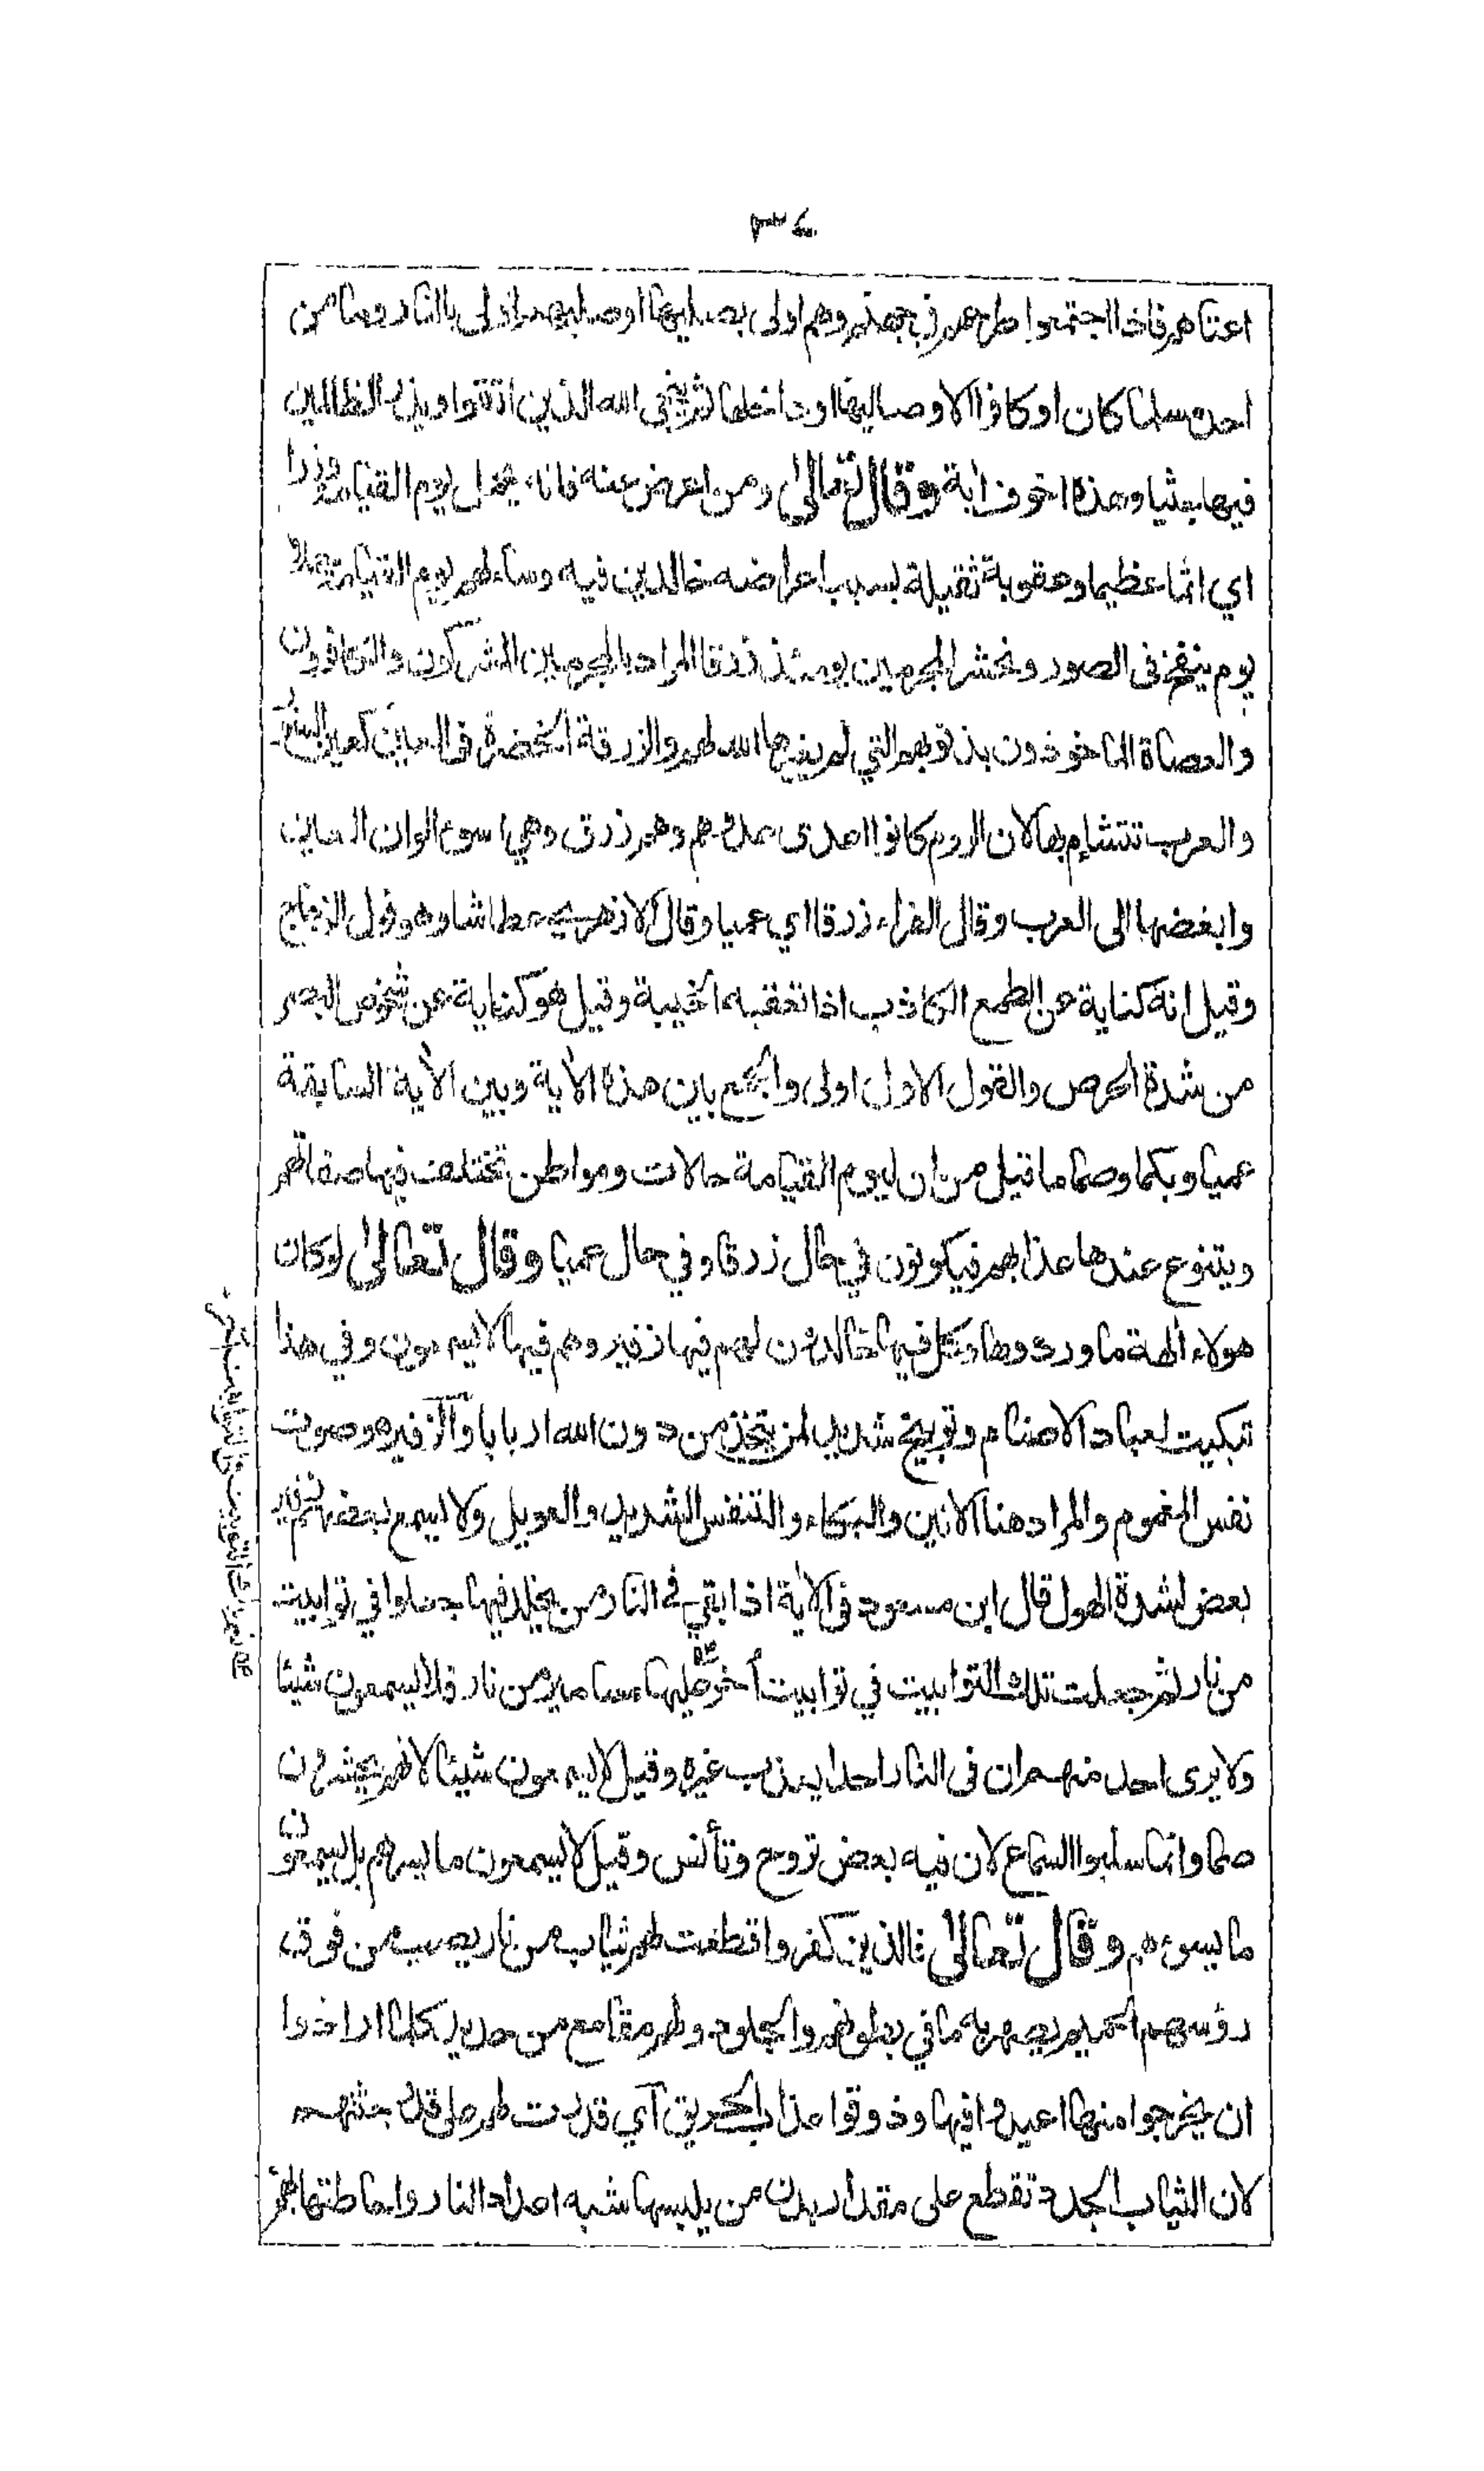 ٣٤
اعتاهم فاذا اجتمعوا طرحهم في جهنم وهم اولى بصليها او صليهم اولى بالنار وما من
احد مسلما كان او كافرا الا وصاليها او داخلها ثم ينجي الله الذين اتقوا ويذر الظالمين
فيها جثيا وهذه اخوف اية وقال تعالى ومن اعرض عنه فانه يحمل يوم القيامة وزرا
اي اثما عظيما وعقوبة ثقيلة بسبب اعراضه خالدين فيه وساء لهم يوم القيامة حملا
يوم ينفخ في الصور ونحشر المجرمين يومئذ زرقا المراد بالمجرمين المشركون والكافرون
والعصاة الماخوذون بذنوبهم التي لم يغفرها الله لهم والزرقة الخضرة في العين كعين السنور
والعرب تتشاءم بها لان الروم كانوا اعدى عدوهم وهم زرق وهي اسوء الوان العين
وابغضها الى العرب وقال الفراء زرقا اي عميا وقال الازهري عطاشا وهو قول الزجاج
وقيل انه كناية عن الطمع الكاذب اذا تعقبه الخيبة وقيل هو كناية عن شخوص البصر
من شدة الحرص والقول الاول اولى والجمع بين هذه الاية وبين الاية السابقة
عميا وبكما وصما ما قيل من ان ليوم القيامة حالات ومواطن تختلف فيها صفاتهم
ويتنوع عندها عذابهم فيكونون في حال زرقا وفي حال عميا وقال تعالى لو كان
هولاء الهة ما وردوها وكل فيها خالدون لهم فيها زفير وهم فيها لا يسمعون وفي هذا
تبكيت لعباد الاصنام وتوبيخ شديد لمن يتخذ من دون الله اربابا والزفير هو صوت
نفس المغموم والمراد هنا الانين والبكاء والتنفس الشديد والعويل ولا يسمع بعضهم زفير
بعض لشدة الهول قال ابن مسعود في الاية اذا بقي في النار من يخلد فيها جعلوا في توابيت
من نار ثم جعلت تلك التوابيت في توابيت اخر عليها مسامير من نار فلا يسمعون شيئا
ولا يرى احد منهم ان في النار احدا يعذب غيره وقيل لا يسمعون شيئا لانهم يحشرون
صما وانما سلبوا السماع لان فيه بعض تروح وتأنس وقيل لا يسمعون ما يسرهم بل يسمعون
ما يسوءهم وقال تعالى فالذين كفروا قطعت لهم ثياب من نار يصب من فوق
رؤسهم الحميم يصهر به ما في بطونهم والجلود ولهم مقامع من حديد كلما ارادوا
ان يخرجوا منها اعيدوا فيها وذوقوا عذاب الحريق اي قدرت لهم على قدر جثتهم
لان الثياب الجدد تقطع على مقدار بدن من يلبسها شبه اعداد النار واحاطتها بهم